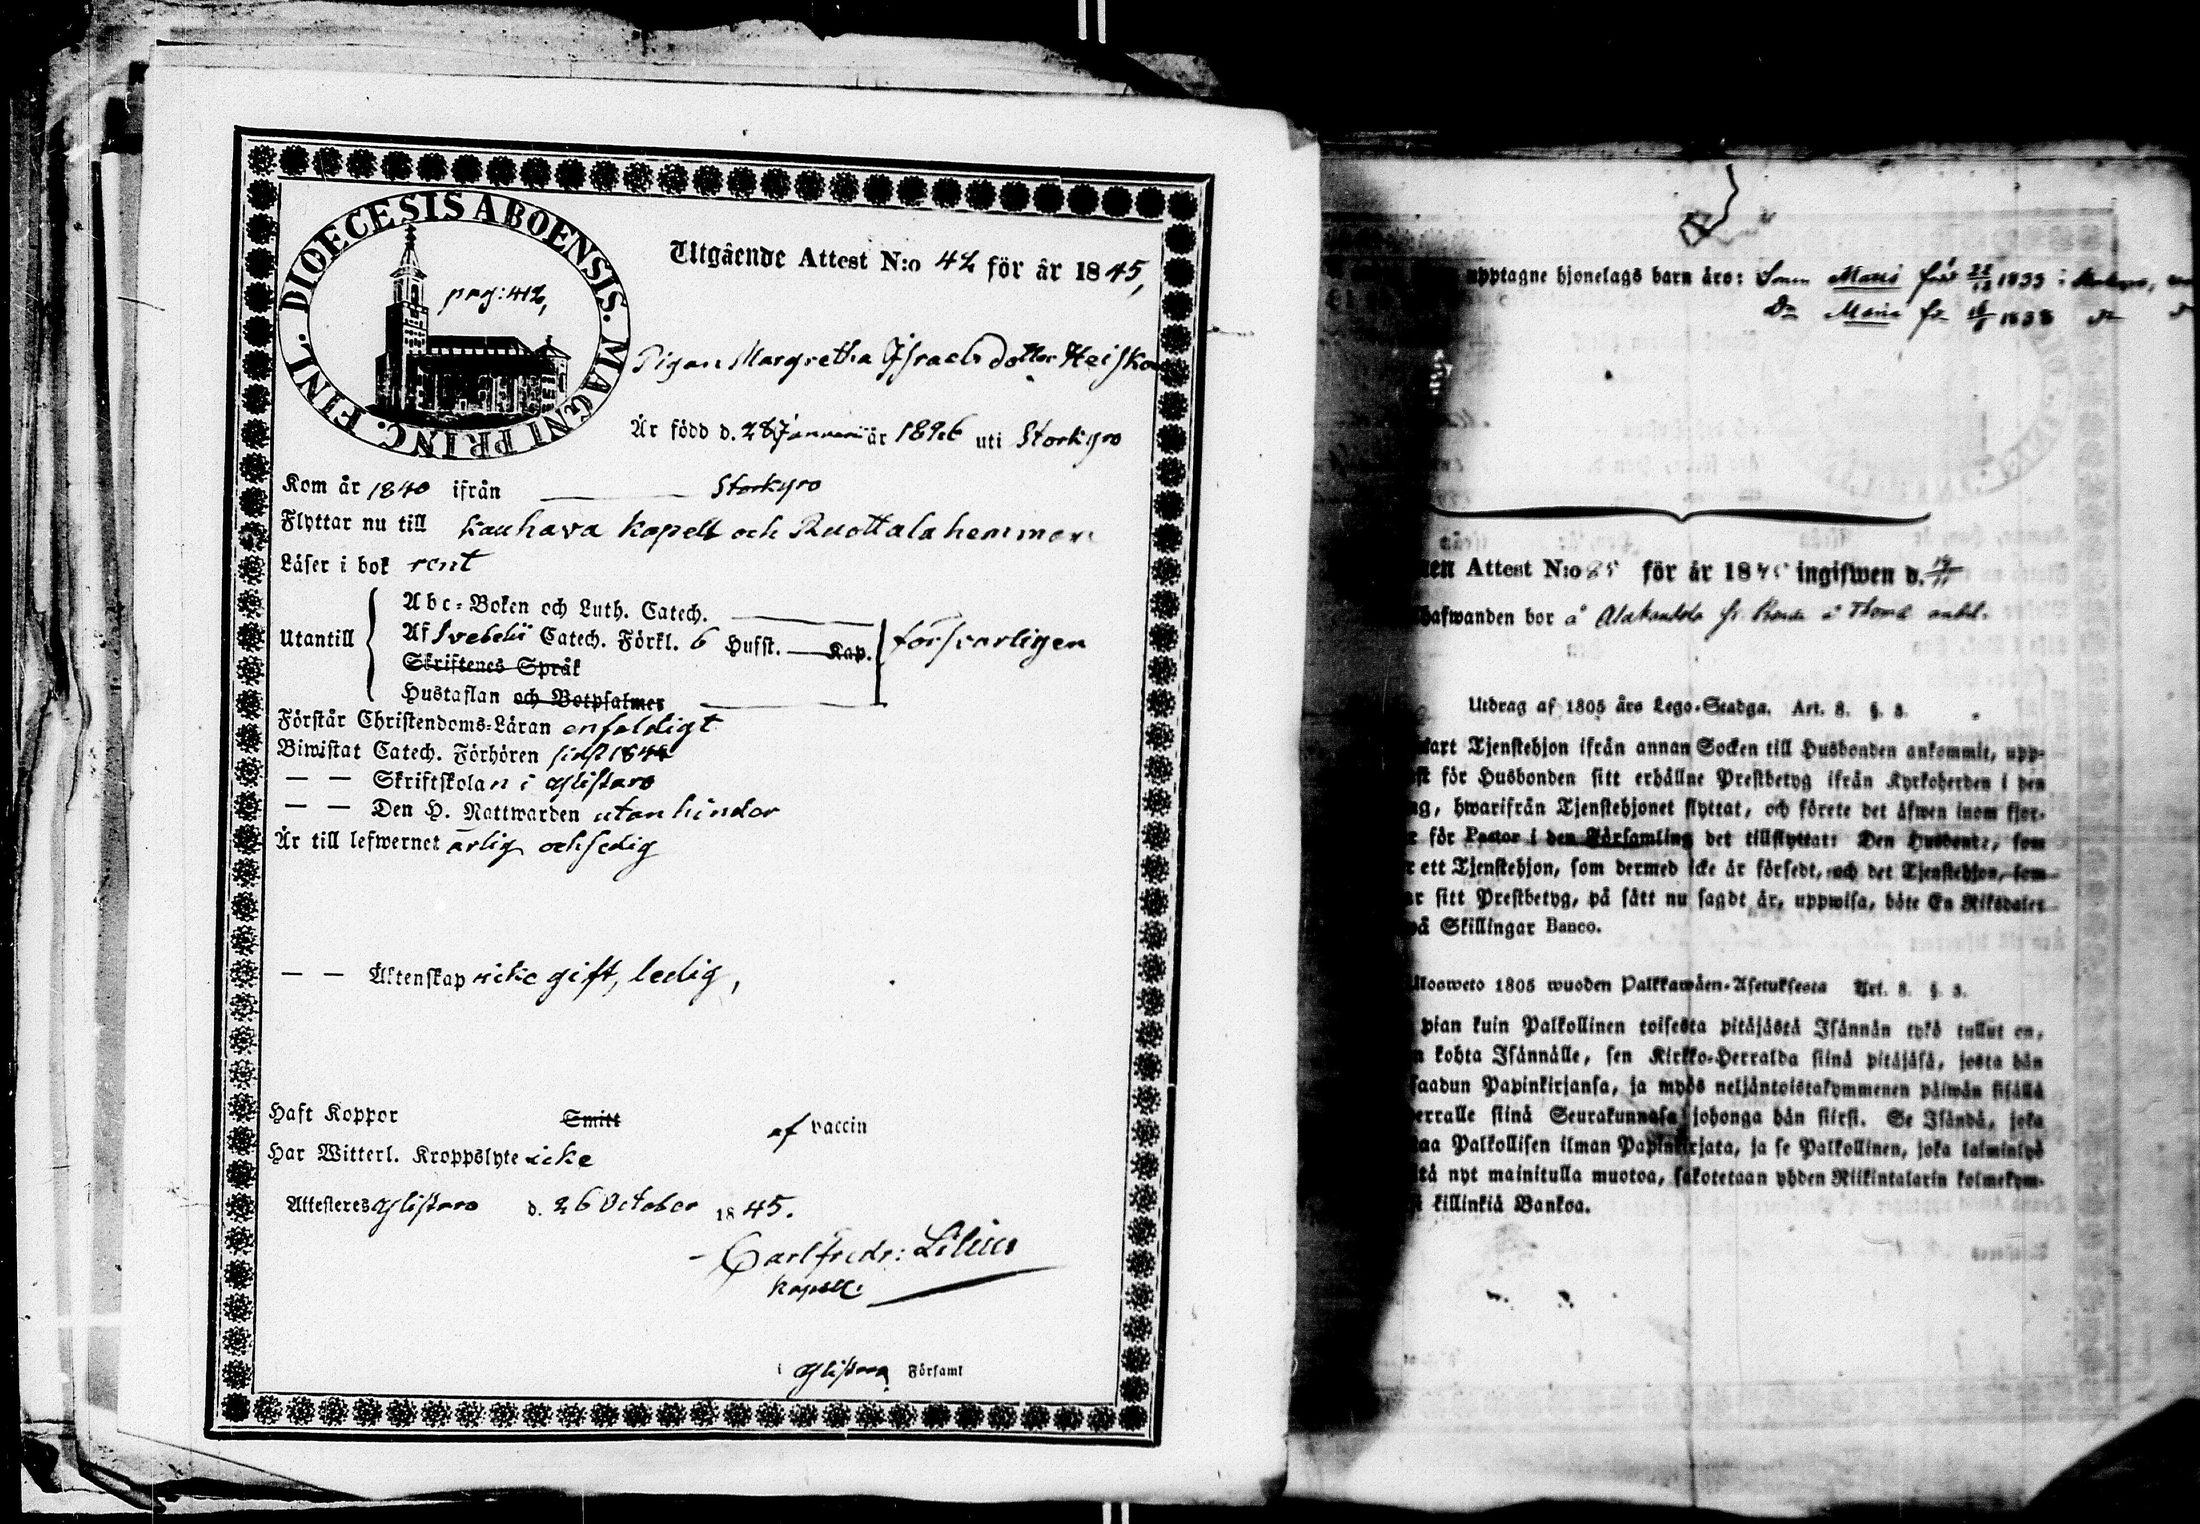 DIOECESIS ABOENSIS. MAGNI PRINC. FINL.
pag: 412,
Utgående Attest N:o 42 för år 1845,
Pigan Margretha Israelsdotter Heisko
Är född d. 28 Januari år 1826 uti Storkyro
Kom år 1840 ifrån Storkyro
Flyttar nu till Kauhava Kapell och Ruottala hemman
Läser i bok rent
Utantill
Abc-Boken och Luth. Catech.
Af Svebelii Catech. Förkl. 6 Hufst. Kap.
försvarligen
Skriftenes Språk
Hustaflan och Botpsalmer
Förstår Christendoms-Läran enfaldigt
Biwistat Catech. Förhören sidst 1844
— — Skriftskolan i Ylistaro
— — Den H. Nattwarden utan hinder
Är till lefwernet ärlig och sedig
— — Äktenskap icke gift, ledig,
Haft Koppor Smitt af vaccin
Har Witterl. Kroppslyte icke
Attesteres Ylistaro d. 26 October 1845.
Carl Fredr: Lilius
Kapell:
i Ylistaro Församl
upptagne hjonelags barn äro: 1833 i
Maria 1838
Attest N:o 85 för år 1845 ingifwen d.
hafwanden bor å
Utdrag af 1805 års Lego-Stadga. Art. 8. §. 3.
Tjenstehjon ifrån annan Socken till Husbonden ankommit, upp-
för Husbonden sitt erhållne Prestbetyg ifrån Kyrkoherden i den
hwarifrån Tjenstehjonet flyttat, och förete det äfwen inom fjor-
för Pastor i den Församling det tillflyttat: Den Husbonde, som
ett Tjenstehjon, som dermed icke är försedt, och det Tjenstehjon, som
sitt Prestbetyg, på sätt nu sagdt är, uppwisa, böte En Riksdaler
Skillingar Banco.
1805 wuoden Palkkawäen-Asetuksesta Art. 8. §. 3.
pian kuin Palkollinen toisesta pitäjästä Isännän tykö tullut on,
kohta Isännälle, sen Kirkko-Herralda siinä pitäjäsä, josta hän
saadun Papinkirjansa, ja myös neljäntoistakymmenen päiwän sisällä
siinä Seurakunnasa johonga hän siirsi. Se Isändä, joka
Palkollisen ilman Papinkirjata, ja se Palkollinen, joka laiminlyö
nyt mainitulla muotoa, sakotetaan yhden Riikintalarin kolmekym-
killinkiä Bankoa.